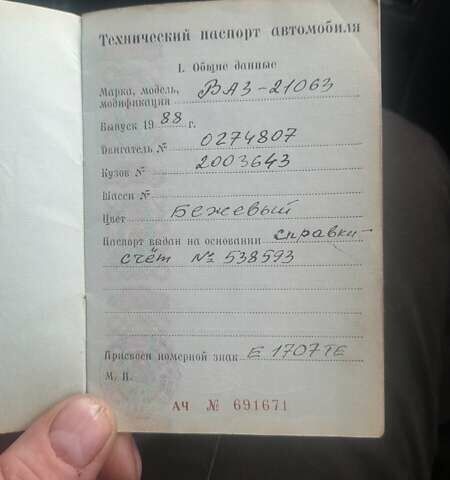 Технический паспорт автомобиля
I. Общие данные
Марка, модель,
модификация ВАЗ-21063
Выпуск 1988 г.
Двигатель № 0274807
Кузов № 2003643
Шасси №
Цвет Бежевый
Паспорт выдан на основании справки-
счёт № 538593
Присвоен номерной знак Е 1707 ТЕ
М. П.
АЧ № 691671